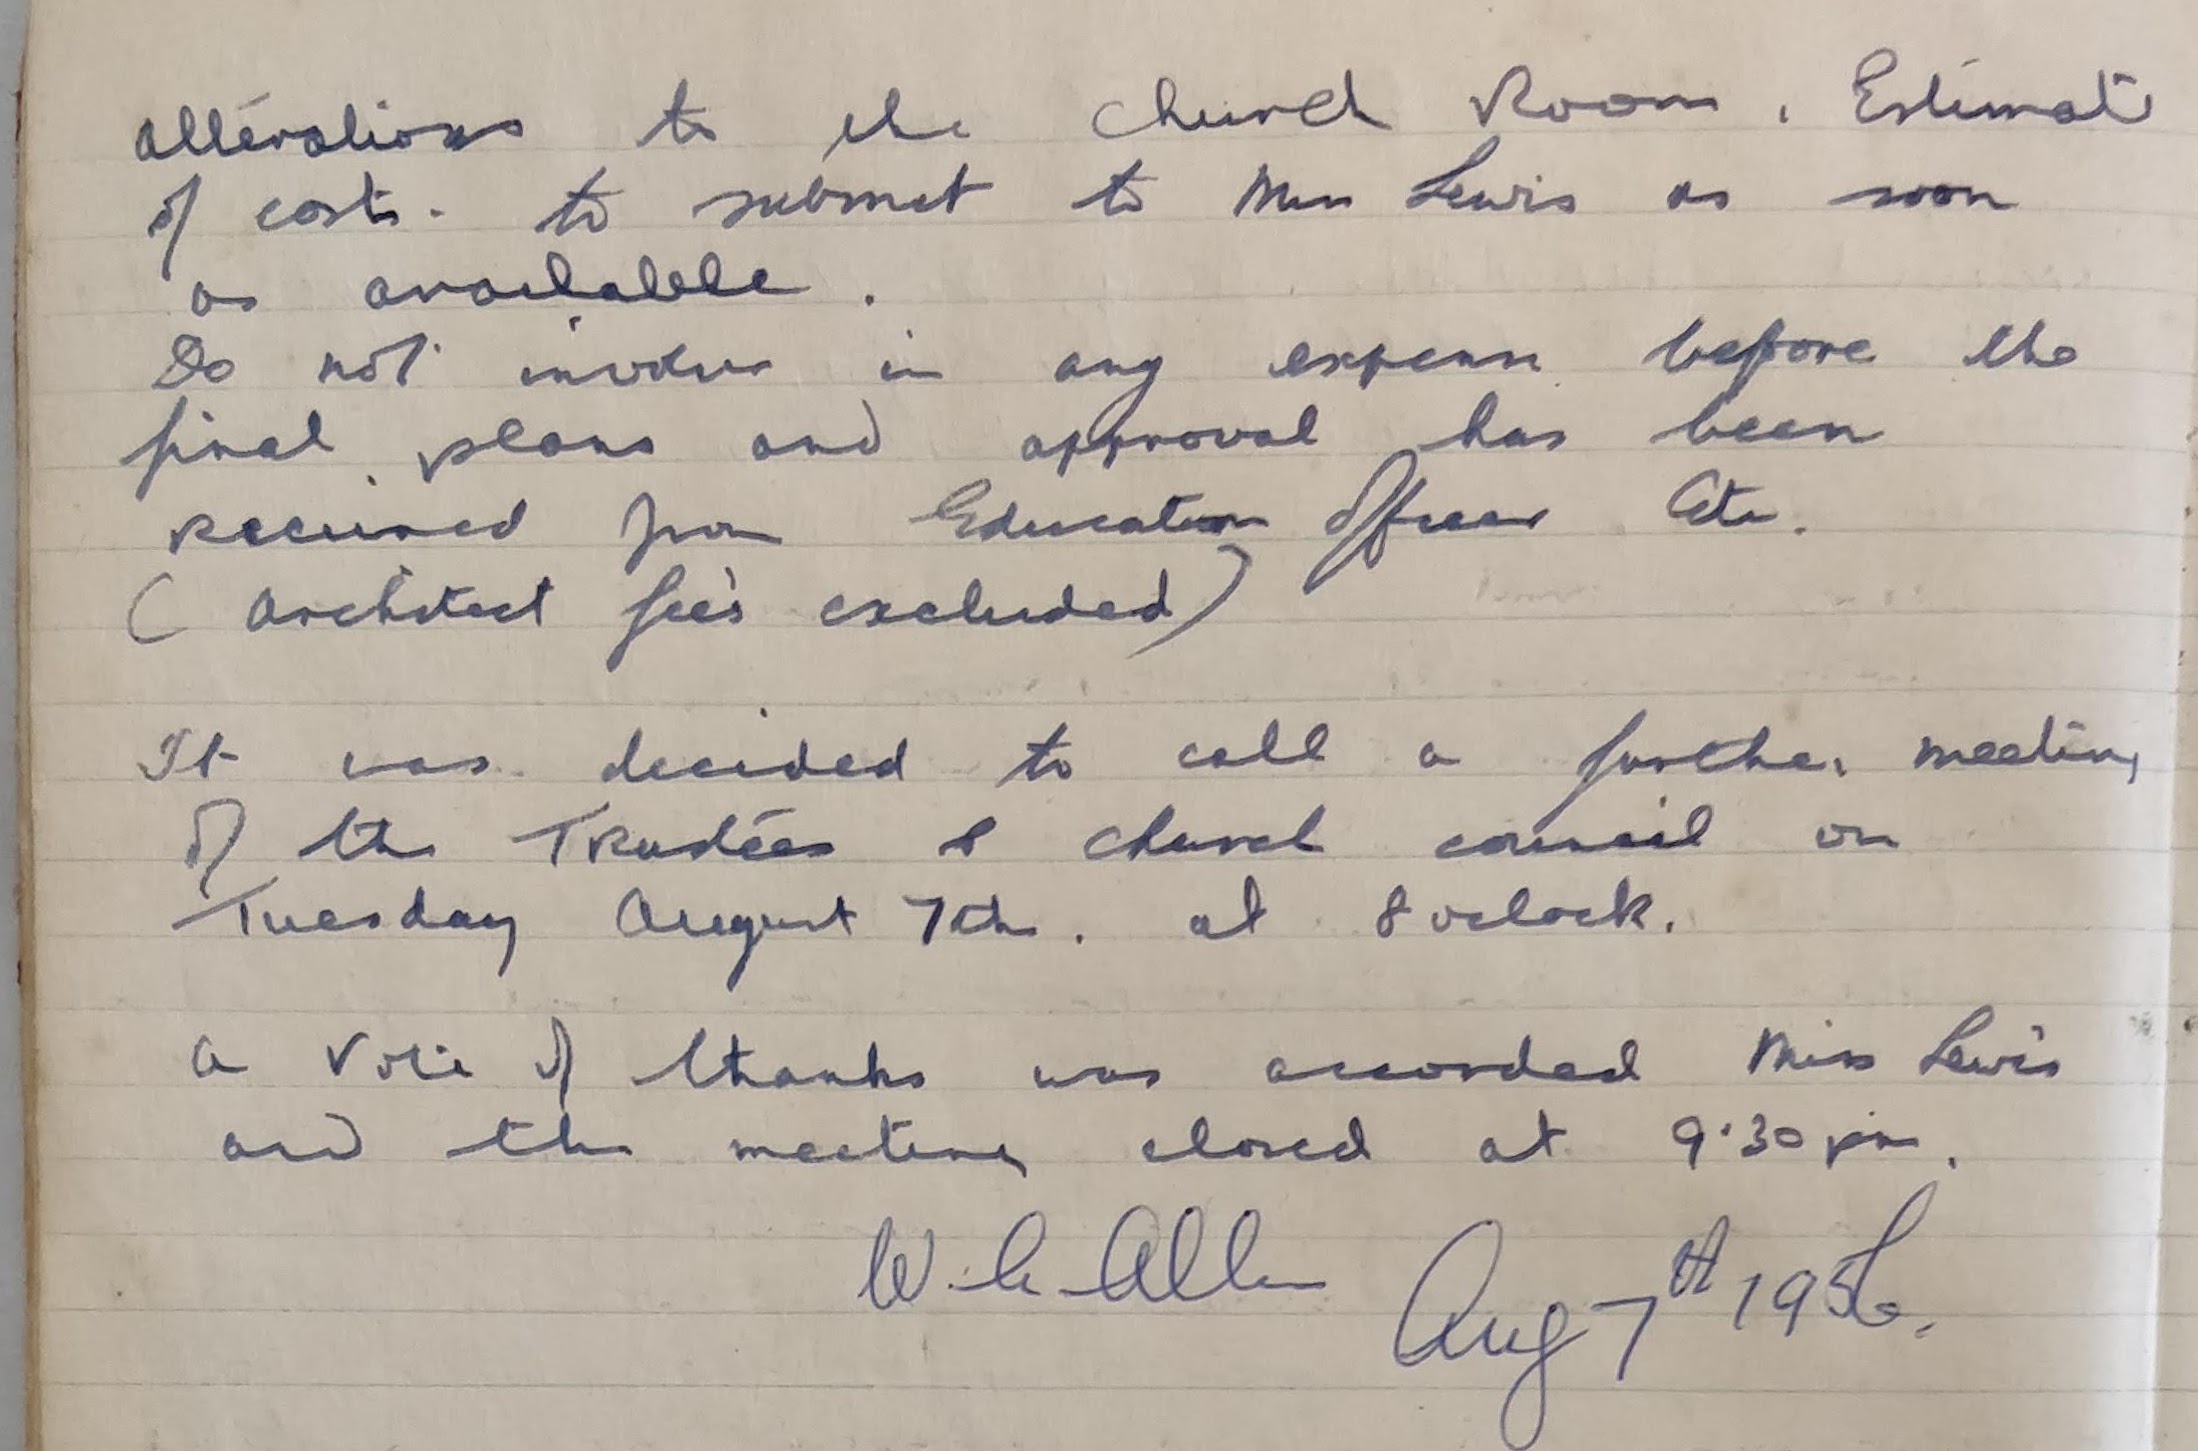 alterations to the Church Room. Estimate
of costs. to submit to Miss Lewis as soon
as available.
Do not involve in any expense before the
final plans and approval has been
received from Education Officer etc.
(architect fee's excluded)
It was decided to call a further meeting
of the Trustees & Church council on
Tuesday August 7th. at 8 oclock.
a Vote of thanks was accorded Miss Lewis
and the meeting closed at 9.30 pm.
W. Allen Aug 7th 1956.